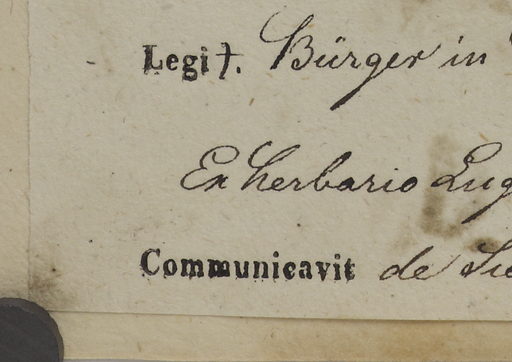 Legit. Bürger in
Ex herbario Lug
Communicavit de